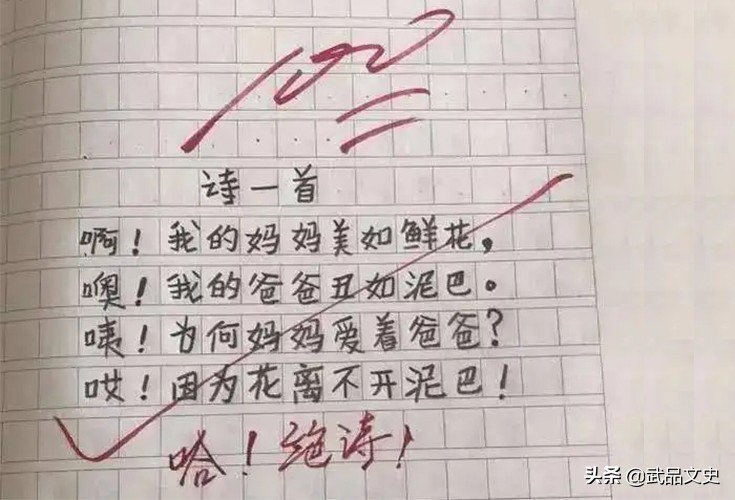 100
诗一首
啊！我的妈妈美如鲜花，
噢！我的爸爸丑如泥巴。
咦！为何妈妈爱着爸爸？
哎！因为花离不开泥巴！
哈！绝诗！
头条 @武品文史